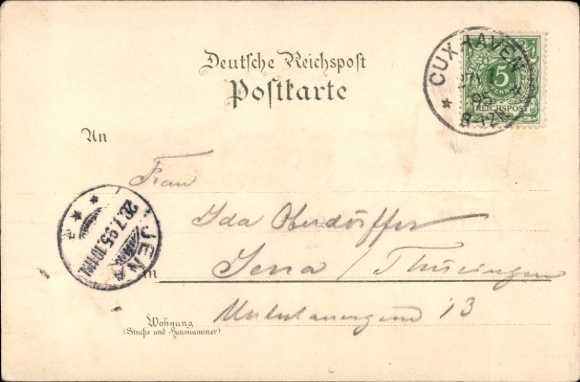 Deutsche Reichspost
Postkarte
CUXHAVEN
27
95
8-12
5
PFENNIG
REICHSPOST
An
Frau
Ida Oberdörffer
in Jena / Thüringen
13
Wohnung
(Straße und Hausnummer)
JENA
28.7.95.10-11